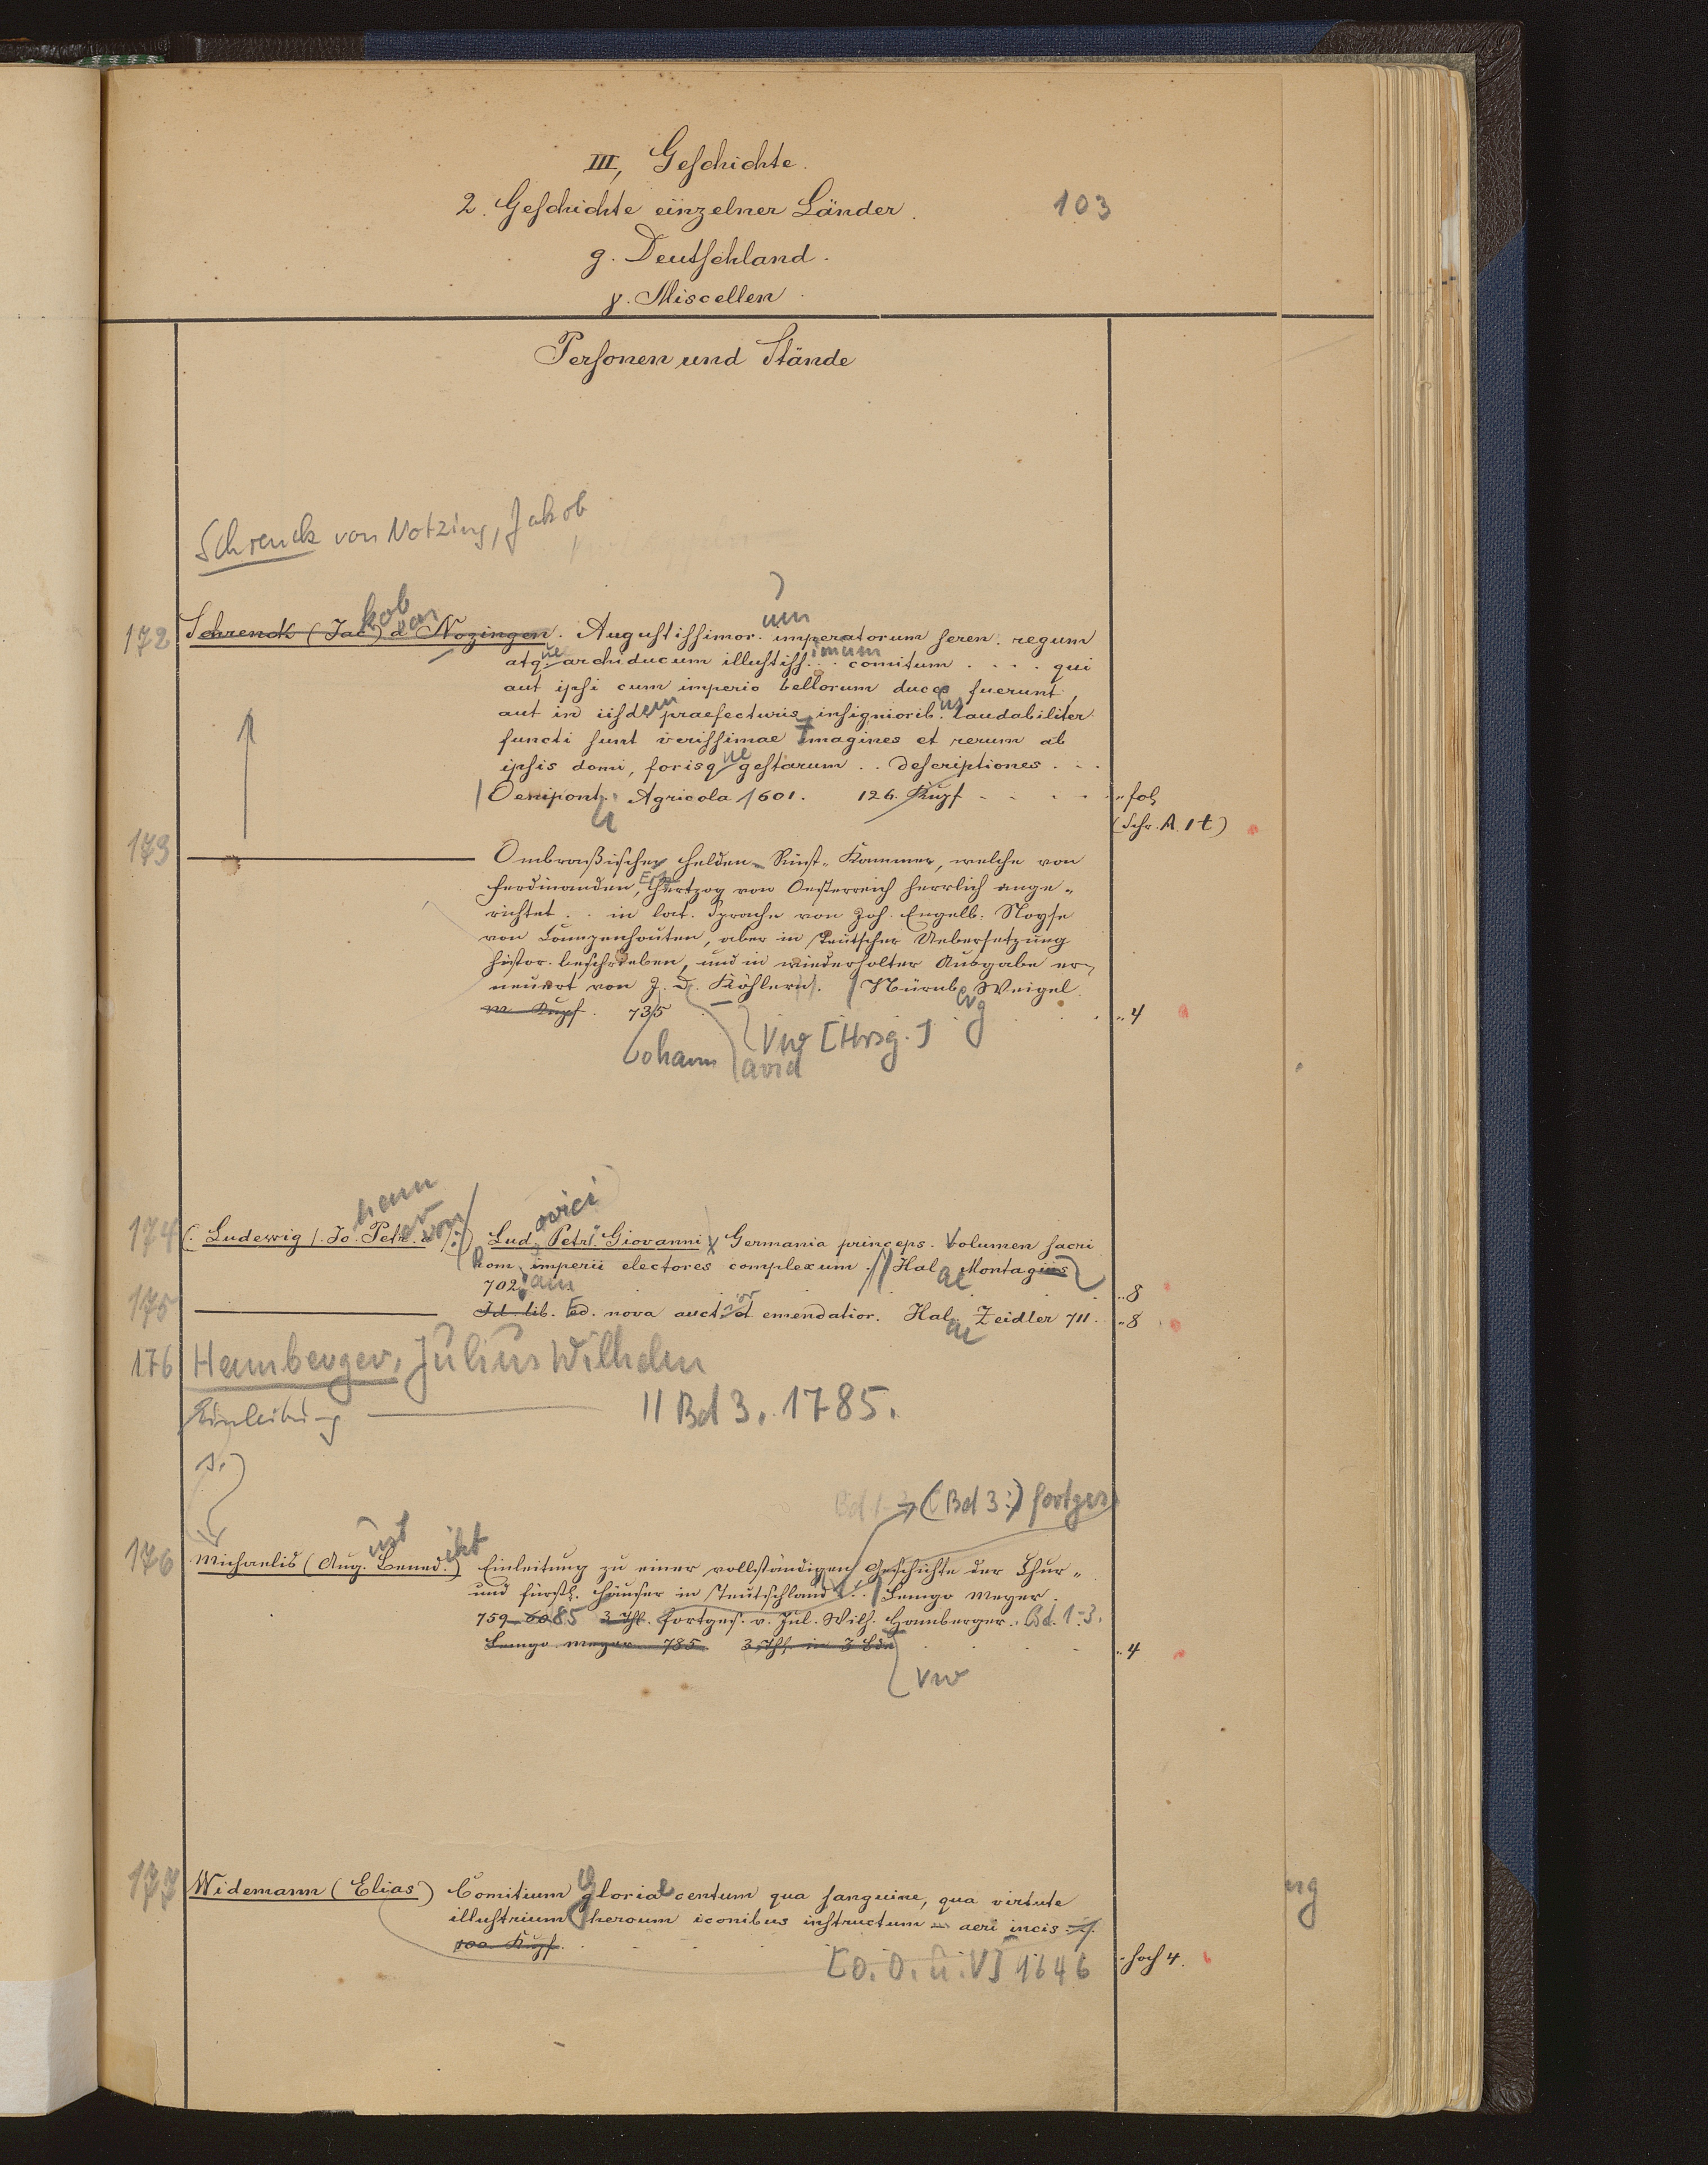 III, Geschichte.
2. Geschichte einzelner Länder.
103
g. Deutschland.
γ. Miscellen.
Personen und Stände
Schrenck von Notzing, Jakob
172 Schrenck (Jac) a Nozingen. Augustissimor. imperatorum seren. regum
kob von um
atq. archiducum illustiss. . . comitum . . . . qui
ue imum
aut ipsi cum imperio bellorum duces fuerunt,
aut in iisdem praefecturis insigniorib. laudabiliter
us
functi sunt verissimae Imagines et rerum ab
ipsis domi, forisq gestarum . . descriptiones . . .
ue
Oenipont. Agricola 1601. 126. Kupf - - - - „ fol
i
(Schr. A. 1t)
173 Ombraßische Helden-Rüst-Kammer, welche von
Ferdinanden, Ertzhertzog von Oesterreich herrlich ange-
richtet . . in lat. Sprache von Joh. Engelb. Noyse
von Campenhouten, aber in Teutscher Uebersetzung
histor. beschrieben, und in wiederholter Ausgabe er-
neuert von J. D. Köhlern. Nürnb. Weigel.
erg
m. Kupf. 735 . . . „ 4
ohann avid
Vw [Hrsg.]
174 (. Ludewig /. Jo. Petr. a /:) Lud. Petri Giovanni Germania princeps. Volumen sacri
hann er von ovici
Rom. imperii electores complexum. // Hal. Montagius
ae
702. „ 8
am
175 Id. lib. Ed. nova auct. et emendatior. Hal. Zeidler 711. „ 8
ior ae
176 Hamberger, Julius Wilhelm
Einleitung // Bd 3. 1785.
s.
(Bd 3:) fortges
176 Michaelis (Aug. Bened.) Einleitung zu einer vollständigen Geschichte der Chur-
ust ikt
und fürstl. Häuser in Teutschland . . Lemgo Meyer.
759-60 85 3 Thl. fortges. v. Jul. Wilh. Hamberger. Bd. 1-3.
Lemgo Meyer 785. 3 Thl. in 3 Bdn . . . „ 4
Vw
177 Widemann (Elias) Comitium gloriae centum qua sanguine, qua virtute
illustrium heroum iconibus instructum aeri incis.
100 Kupf. . . . . - hoch 4.
[O. O. u. V] 1646
ng